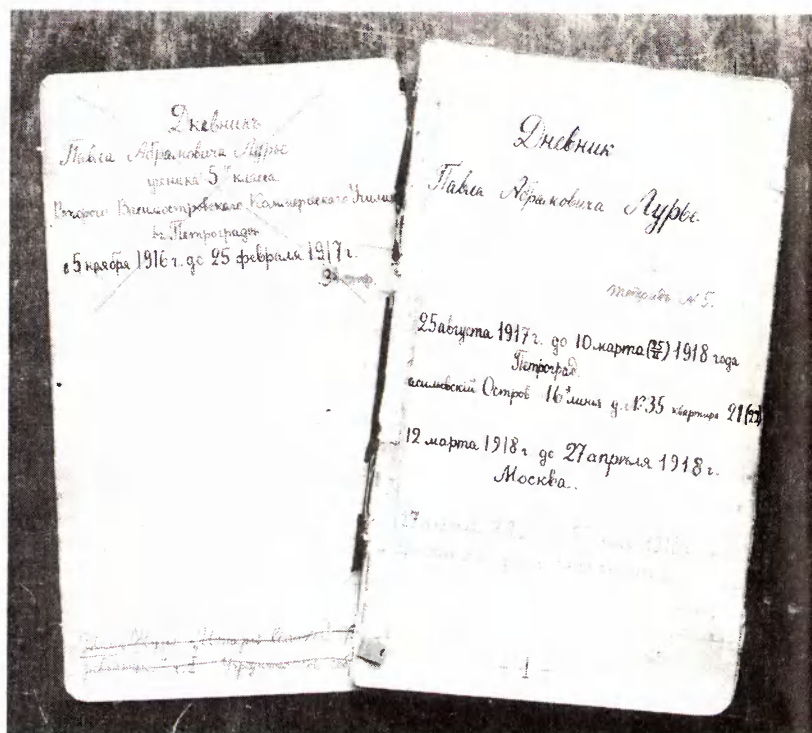 Дневникъ
Павла Абрамовича Лурье
ученика 5го класса
Второго Василеостровского Коммерческого Учили
въ Петроградѣ
с 5 ноября 1916 г. до 25 февраля 1917 г.
Дневник
Павла Абрамовича Лурье.
тетрадь № 5.
25 августа 1917 г. до 10 марта (25/II) 1918 года
Петроград.
асильевскій Остров 16я линия д. № 35 квартира 21 (22)
12 марта 1918 г до 27 апреля 1918 г.
Москва..
- 1 -